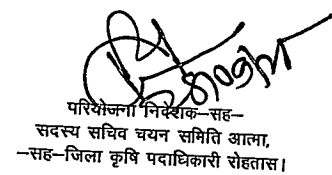 परियोजना निदेशक–सह–
सदस्य सचिव चयन समिति आत्मा,
–सह–जिला कृषि पदाधिकारी रोहतास।